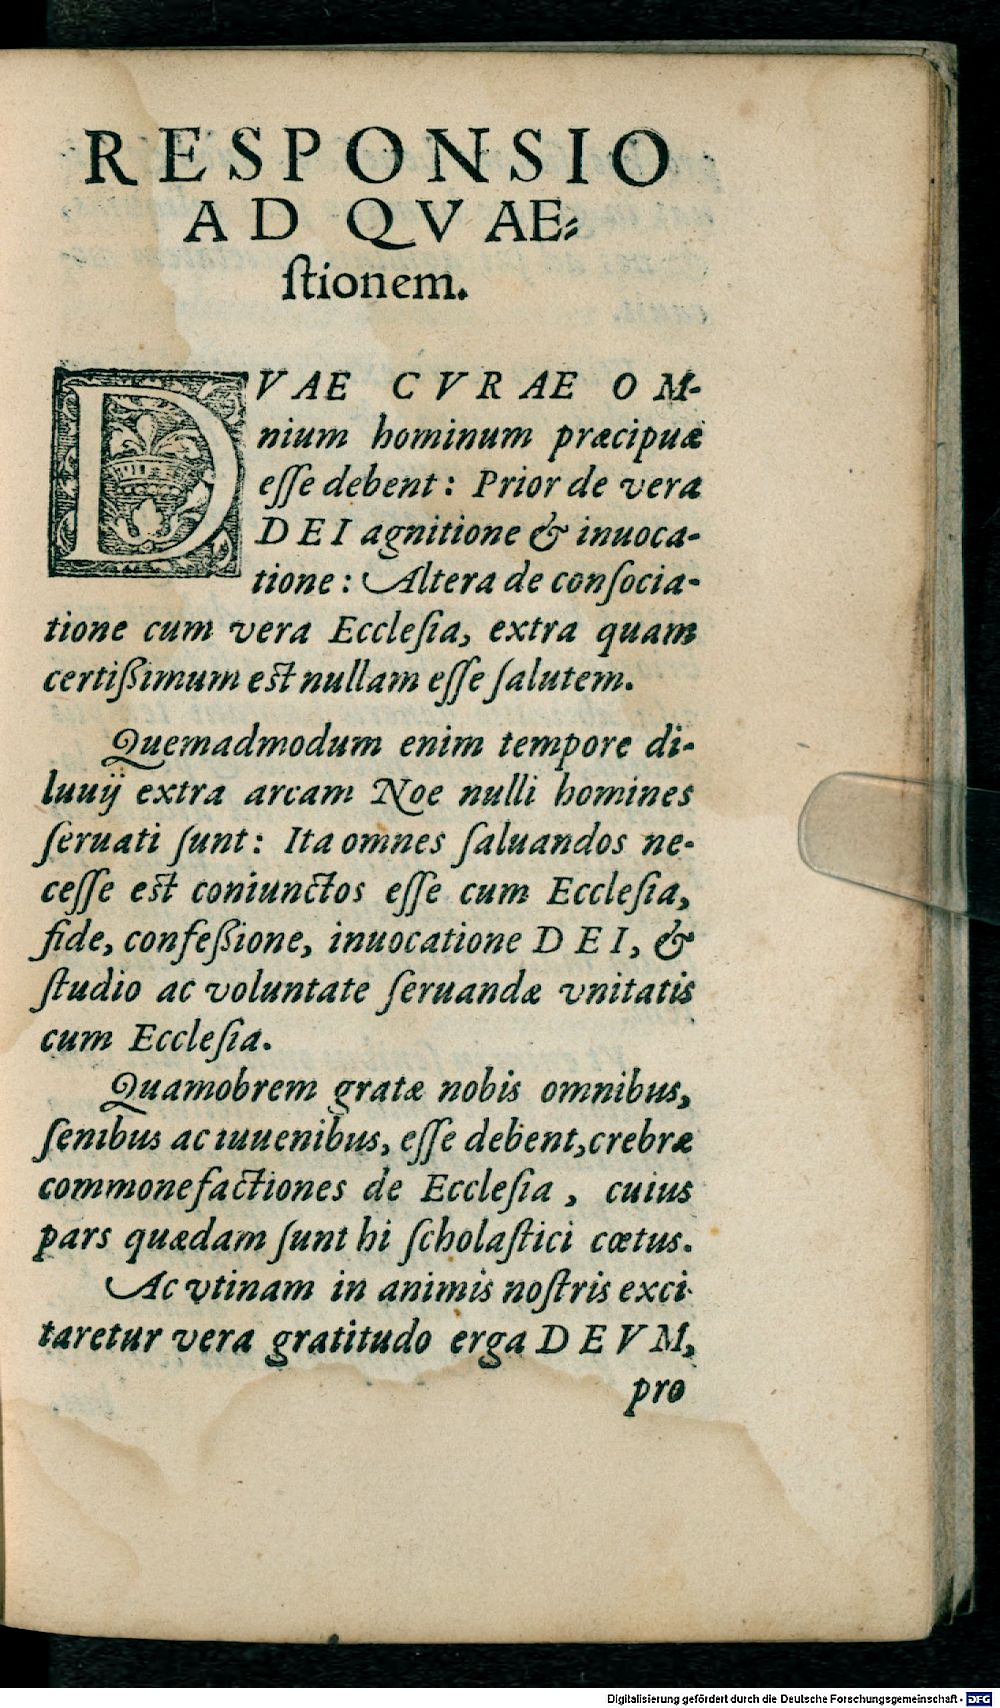 RESPONSIO
AD QVAE⸗
ſtionem.
DVAE CVRAE OM-
nium hominum præcipuæ
eſſe debent: Prior de vera
DEI agnitione & inuoca-
tione: Altera de conſocia-
tione cum vera Eccleſia, extra quam
certiſſimum est nullam eſſe ſalutem.
Quemadmodum enim tempore di-
luuij extra arcam Noe nulli homines
ſeruati ſunt: Ita omnes ſaluandos ne-
ceſſe est coniunctos eſſe cum Eccleſia,
fide, confeſſione, inuocatione DEI, &
ſtudio ac voluntate ſeruandæ vnitatis
cum Eccleſia.
Quamobrem gratæ nobis omnibus,
ſenibus ac iuuenibus, eſſe debent, crebræ
commonefactiones de Eccleſia, cuius
pars quædam ſunt hi ſcholaſtici cœtus.
Ac vtinam in animis noſtris exci-
taretur vera gratitudo erga DEVM,
pro
Digitalisierung gefördert durch die Deutsche Forschungsgemeinschaft - DFG